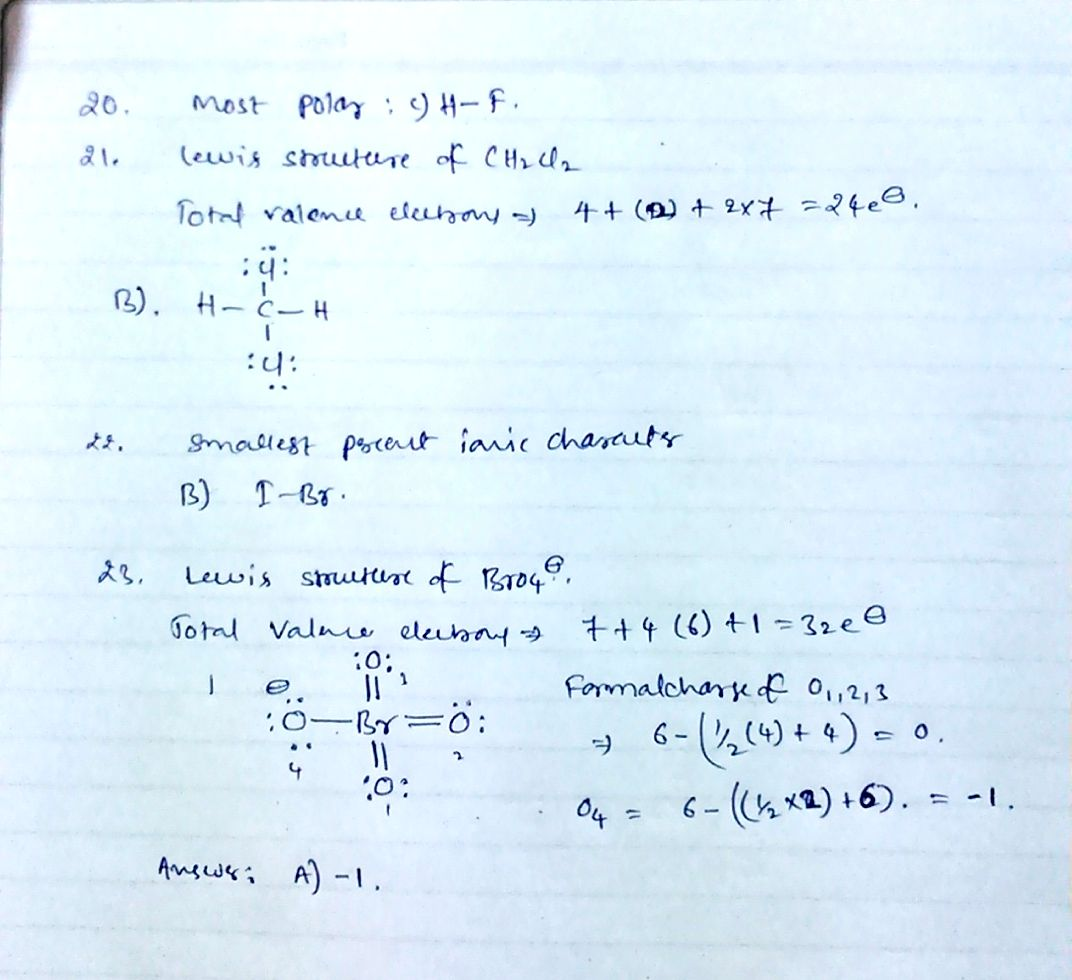 20. Most polar : c) H-F.
21. Lewis structure of CH2Cl2
Total valence electrons ⇒ 4 + (2) + 2x7 = 24e⊖.
:Cl:
B). H-C-H
:Cl:
22. smallest percent ionic charcuter
B) I-Br.
23. Lewis structure of BrO4⊖.
Total Valnce electrons ⇒ 7+4(6)+1 = 32e⊖
:O: 3
1 ⊖ Formalcharge of O1,2,3
:O-Br=O:
4 2 ⇒ 6-(1/2(4)+4) = 0.
:O:
1 O4 = 6-((1/2x2)+6). = -1.
Answer: A) -1.